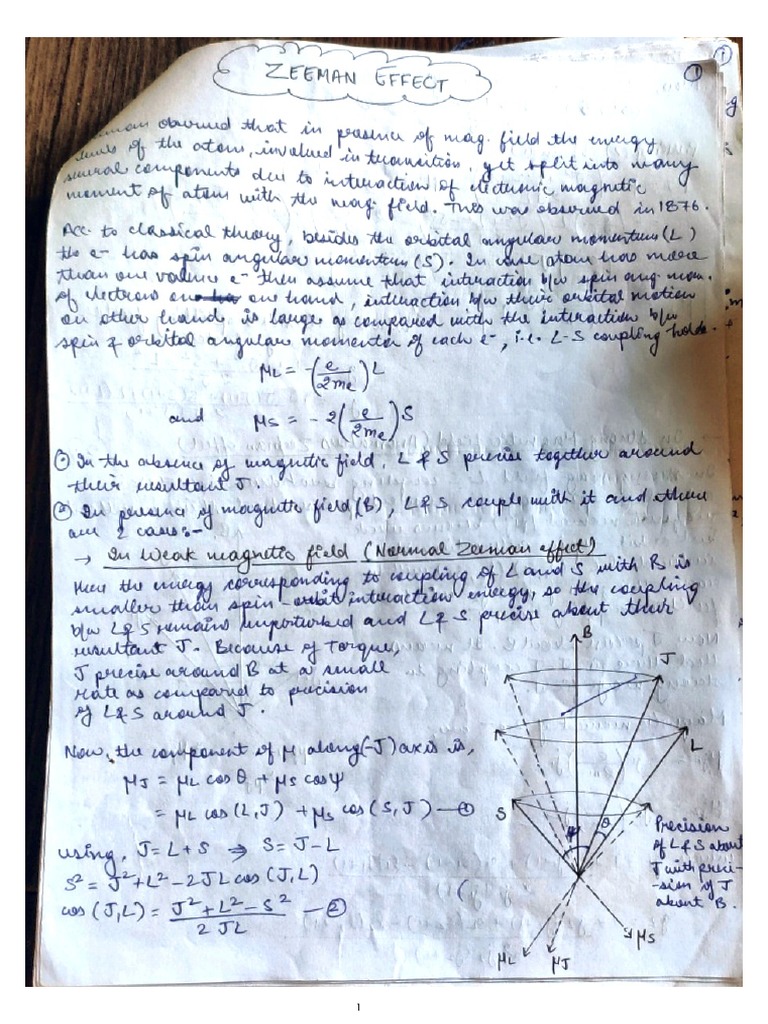 ZEEMAN EFFECT
1
observed that in presence of mag. field the energy
of the atom, involved in transition, get split into many
several components due to interaction of electronic magnetic
moment of atom with the mag. field. This was observed in 1876.
Acc. to classical theory, besides the orbital angular momentum (L)
the e- has spin angular momentum (S). In case atom has more
than one valence e- then assume that interaction b/w spin ang. mom.
of electrons on one hand, interaction b/w their orbital motion
on other hand is large as compared with the interaction b/w
spin & orbital angular momenta of each e-, i.e. L-S coupling holds.
μL = -(e/2me)L
and μS = -2(e/2me)S
① In the absence of magnetic field, L & S precise together around
their resultant J.
② In presence of magnetic field (B), L & S couple with it and there
are 2 cases:-
→ In Weak magnetic field (Normal Zeeman effect)
Here the energy corresponding to coupling of L and S with B is
smaller than spin-orbit interaction energy, so the coupling
b/w L & S remains unperturbed and L & S precise about their
resultant J. Because of Torque,
J precise around B at a small
rate as compared to precision
of L & S around J.
Now, the component of μ along (-J) axis is,
μJ = μL cosθ + μS cosψ
= μL cos(L,J) + μS cos(S,J) —①
using, J = L+S ⇒ S = J-L
S² = J²+L²-2JL cos(J,L)
cos(J,L) = J²+L²-S² / 2JL —②
B
J
L
S
ψ
θ
μS
μL
μJ
Precision
of L & S about
J with preci-
-sion of J
about B.
1